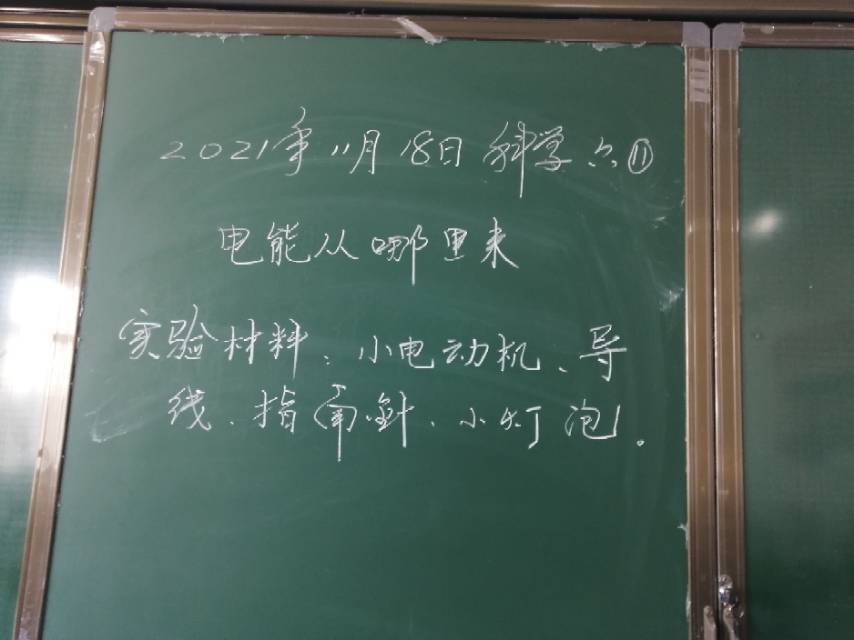 2021年11月18日 科学 六⑪
电能从哪里来
实验材料、小电动机、导
线、指南針、小灯泡。